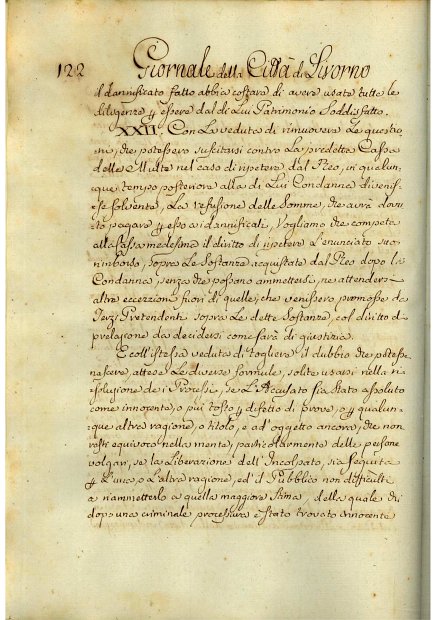 122 Giornale della Città di Livorno
il dannificato fatto abbia costare di avere usate tutte le
diligenze p essere dal di Lui Patrimonio Soddisfatto.
XXII. Con La veduta di rimuovere Le questio
ni, che potessero suscitarsi contro La predetta Cassa
delle Multe nel caso di ripetere dal Reo, in qualun-
que tempo posteriore alla di Lui Condanna divenis-
se solvente, La refusione delle Somme, che avrà dovu
to pagare p essa i dannificati, Vogliamo che competa
alla Cassa medesima il diritto di ripetere L'enunciato suo
rimborso, sopra Le Sostanze acquistate dal Reo dopo la
Condanna, senza che possano ammettersi, ne attendersi
altre eccezzioni fuori di quelle, che venissero promosse da
Terzi Pretendenti sopra Le dette Sostanze, col diritto di
prelazione da decidersi come sarà di giustizia.
E coll'istessa veduta di togliere il dubbio che potesse
nascere, attese Le diverse formule, solite usarsi nella ri
soluzione dei Processi, se L'Accusato sia stato assoluto
come innocente, o più tosto p difetto di prove, o p qualun-
que altra ragione, o titolo, e ad'oggetto ancora, che non
resti equivoco nella mente, particolarmente delle persone
volgari, se la Liberazione dell'Incolpato, sia seguita
p L'una, o L'altra ragione, ed'il Pubblico non difficulti
a riammetterlo a quella maggiore stima, della quale chi
dopo una criminale processura è stato trovato innocente